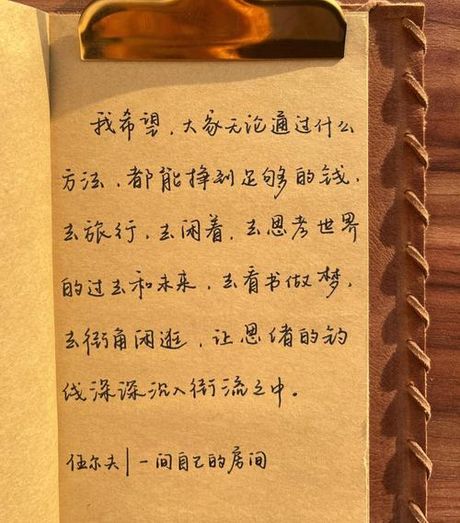 我希望，大家无论通过什么
方法，都能挣到足够的钱，
去旅行，去闲着，去思考世界
的过去和未来，去看书做梦，
去街角闲逛，让思绪的钓
线深深沉入街流之中。
伍尔夫|一间自己的房间